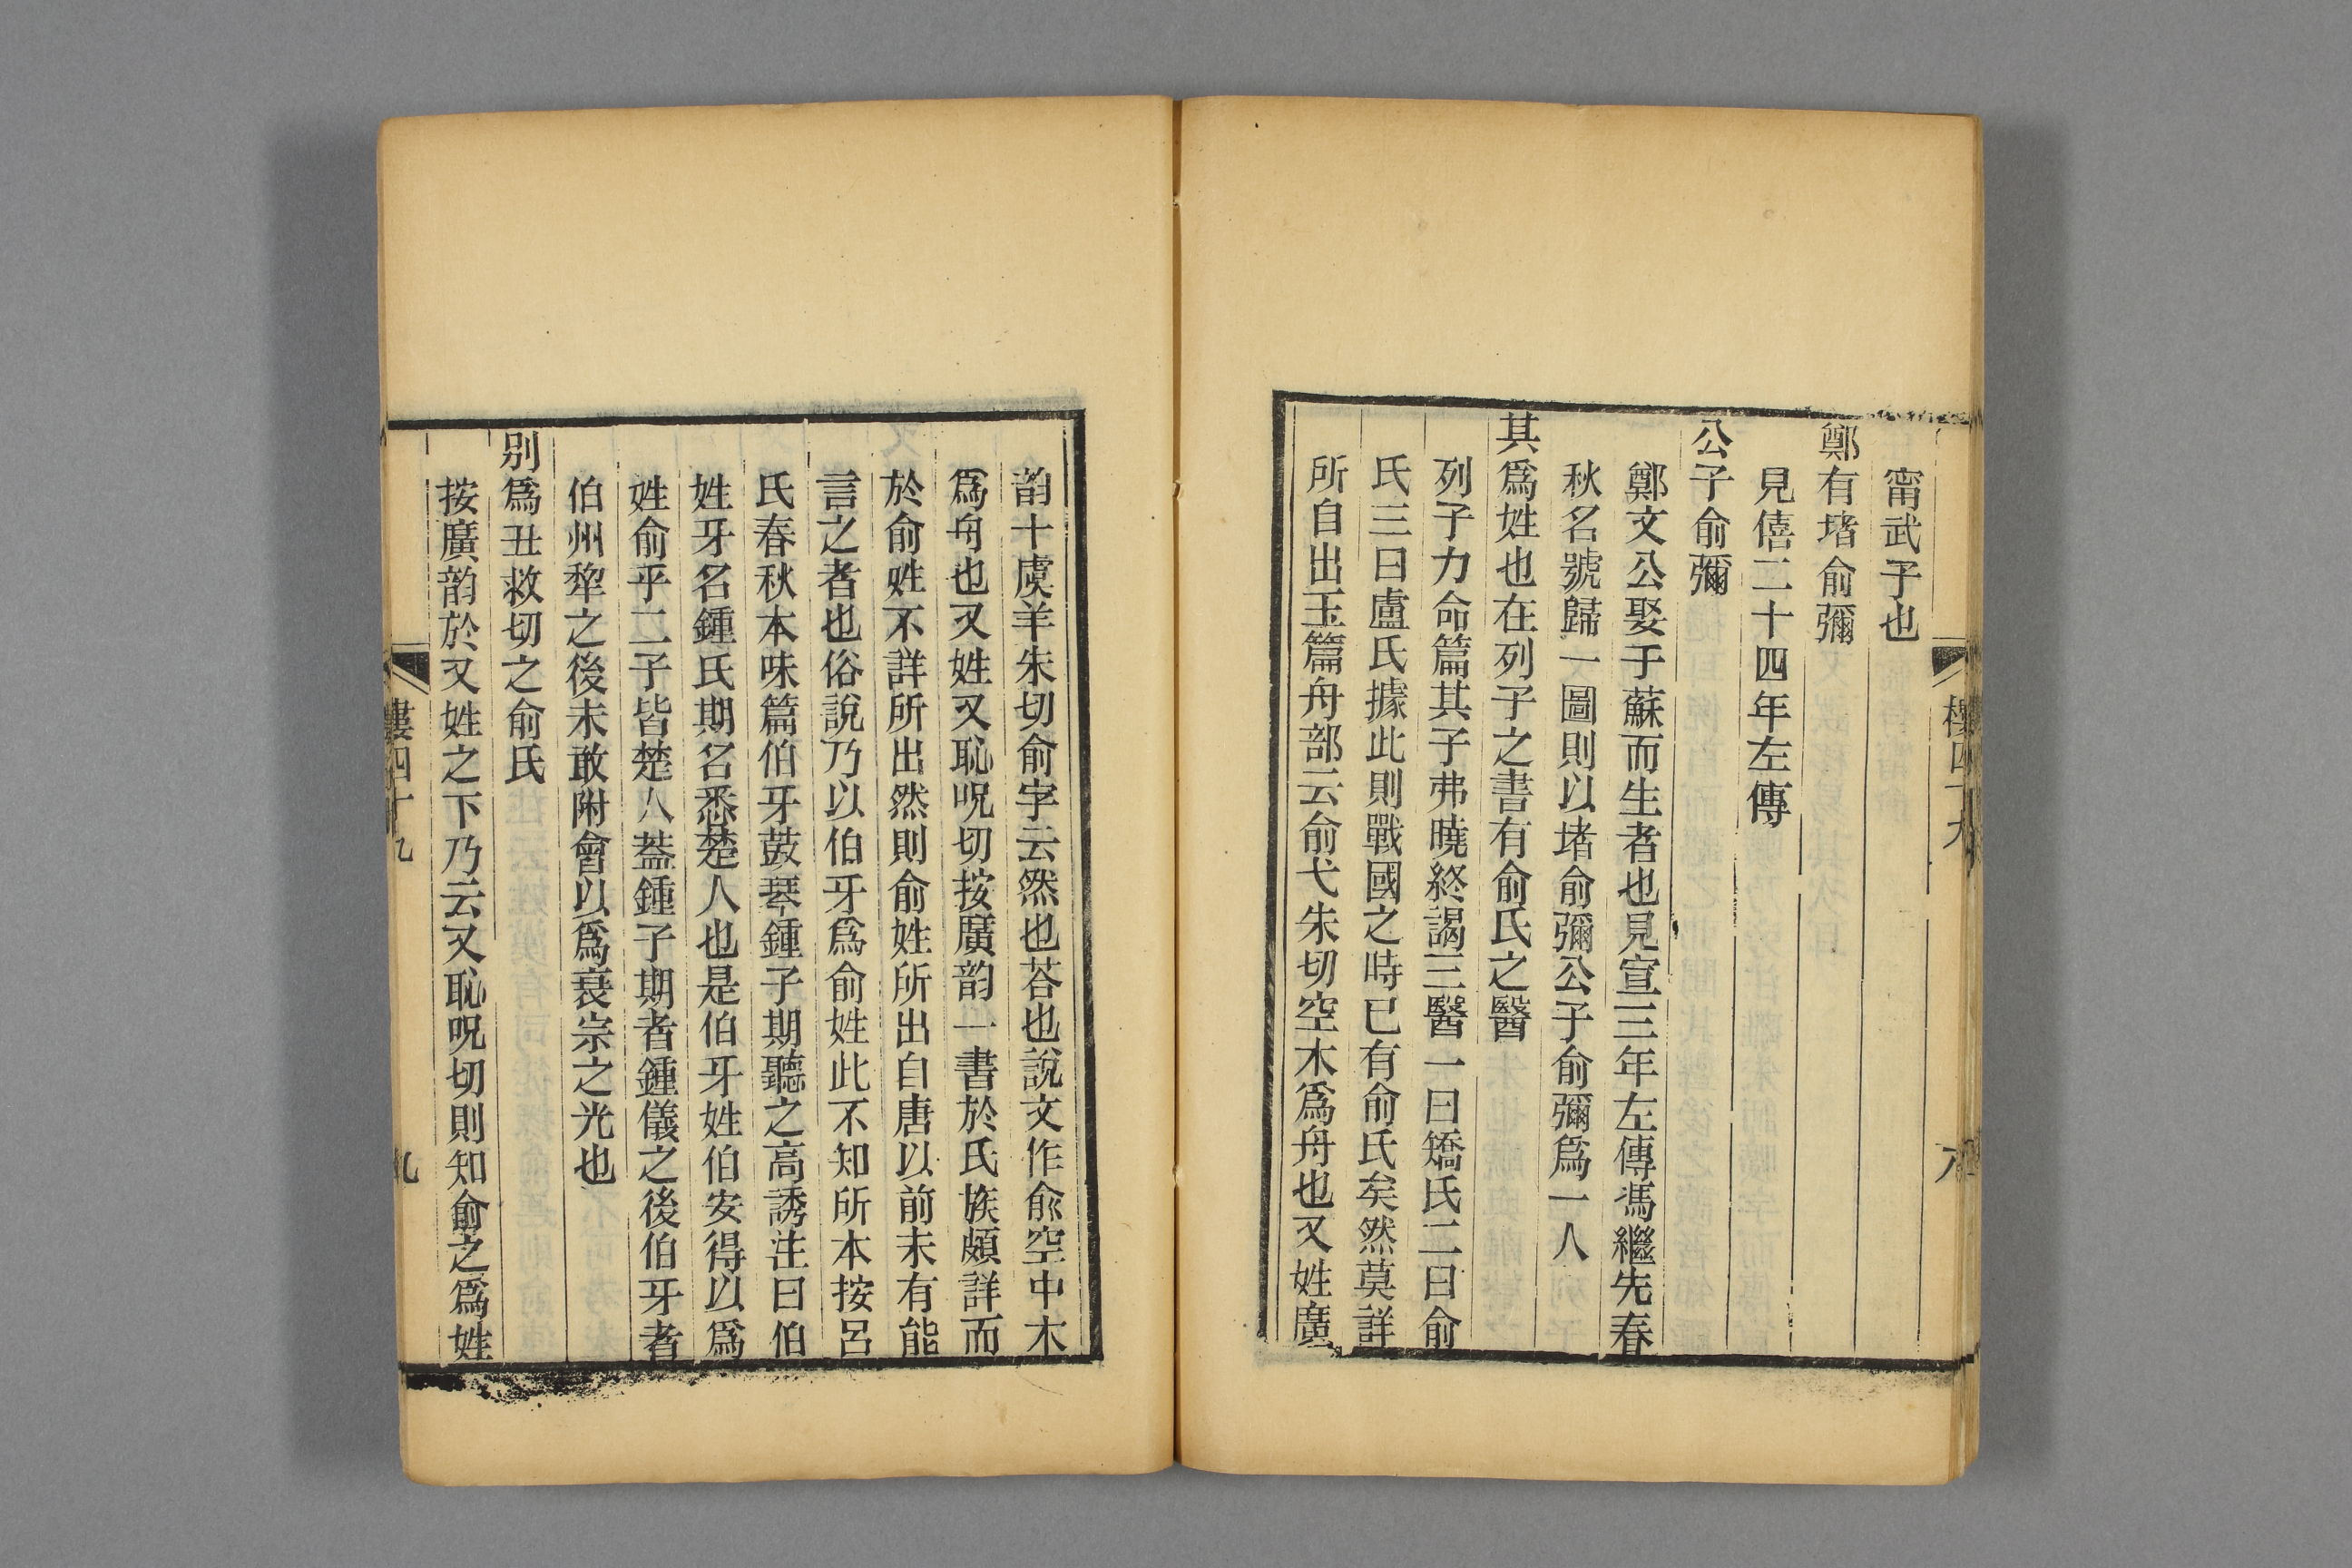 甯武子也
鄭有堵俞彌
見僖二十四年左傳
公子俞彌
鄭文公娶于蘇而生者也見宣三年左傳馮繼先春
秋名號歸一圖則以堵俞彌公子俞彌爲一人
其爲姓也在列子之書有俞氏之醫
列子力命篇其子弗曉終謁三醫一曰矯氏二曰俞
氏三曰盧氏據此則戰國之時已有俞氏矣然莫詳
所自出玉篇舟部云俞弋朱切空木爲舟也又姓廣
韵十虞羊朱切俞字云然也荅也說文作俞空中木
爲舟也又姓又恥呪切按廣韵一書於氏族頗詳而
於俞姓不詳所出然則俞姓所出自唐以前未有能
言之者也俗說乃以伯牙爲俞姓此不知所本按呂
氏春秋本味篇伯牙鼓琴鍾子期聽之高誘注曰伯
姓牙名鍾氏期名悉楚人也是伯牙姓伯安得以爲
姓俞乎二子皆楚人葢鍾子期者鍾儀之後伯牙者
伯州犂之後未敢附會以爲衰宗之光也
别爲丑救切之俞氏
按廣韵於又姓之下乃云又恥呪切則知俞之爲姓
樓四十九
九